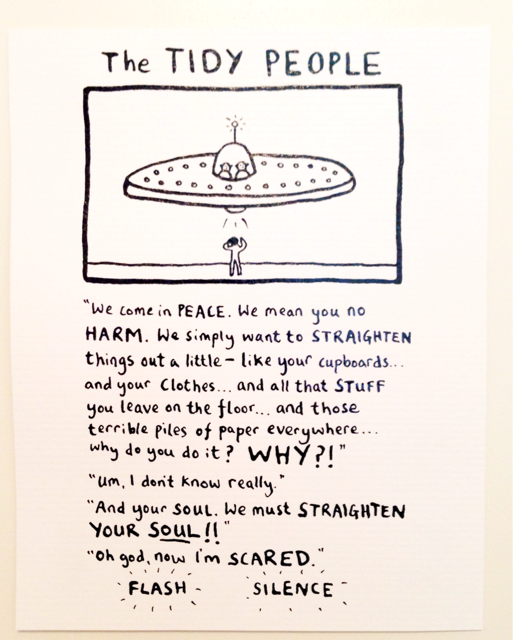 The TIDY PEOPLE
"We come in PEACE. We mean you no
HARM. We simply want to STRAIGHTEN
things out a little – like your cupboards...
and your clothes... and all that STUFF
you leave on the floor... and those
terrible piles of paper everywhere...
why do you do it? WHY?!"
"Um, I don't know really."
"And your SOUL. We must STRAIGHTEN
YOUR SOUL!!"
"Oh god, now I'm SCARED."
FLASH SILENCE